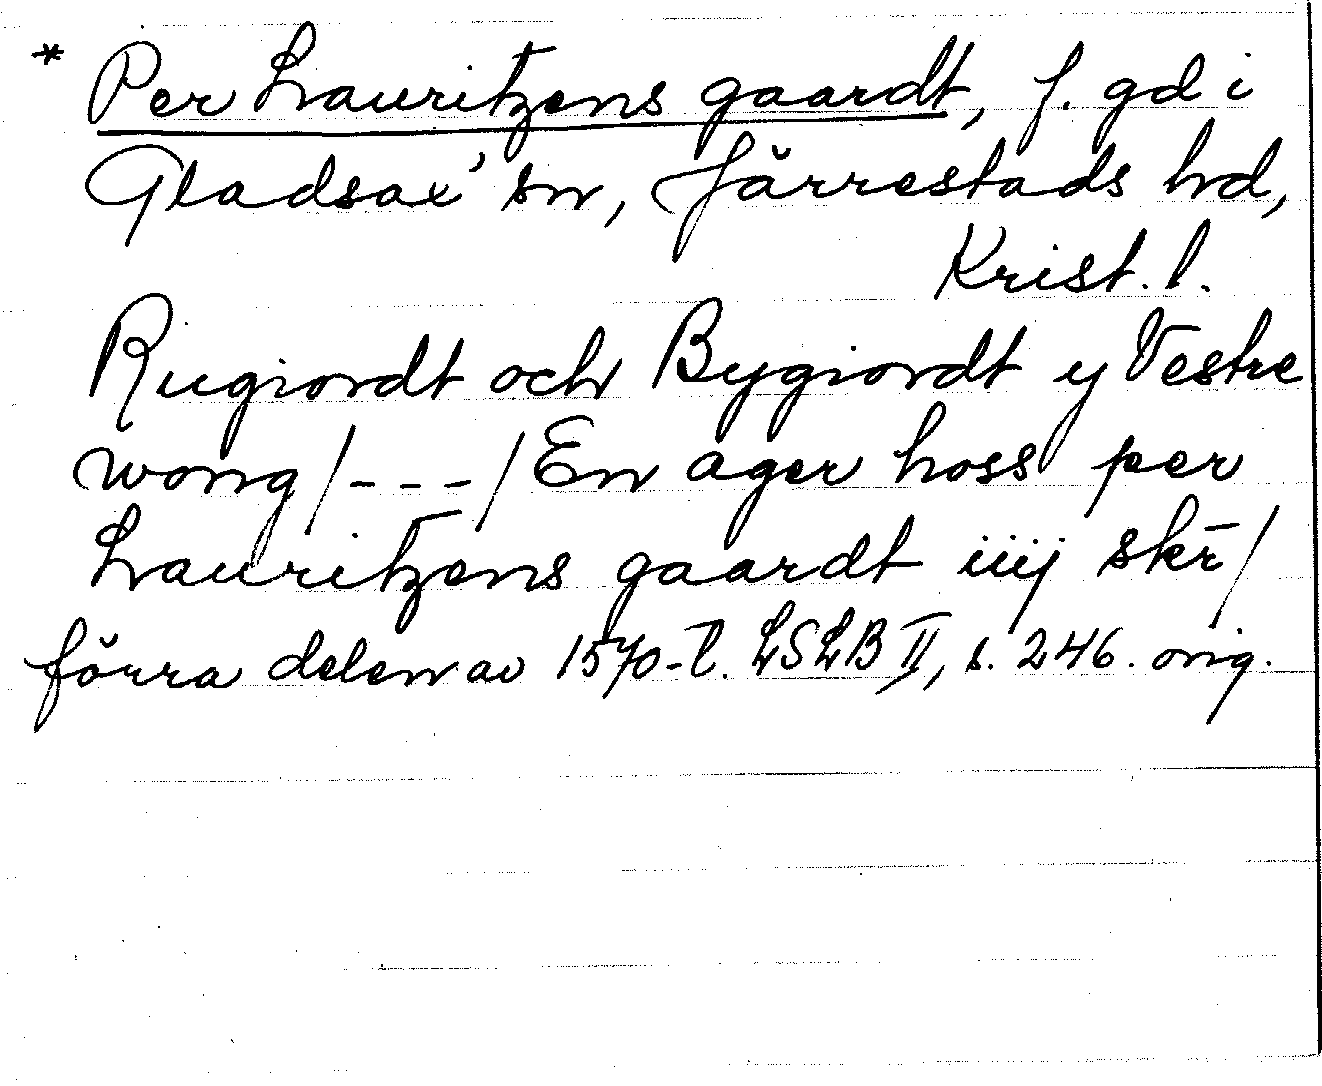 * Per Lauritzens gaardt, f. gd i
Gladsax' sn, Järrestads hd,
Krist. l.
Rugiordt och Bygiordt y Vestre
wong /---/ En ager hoss per
Lauritzens gaardt iiij skr̄ /
förra delen av 1570-t. LSLB II, s. 246. orig.